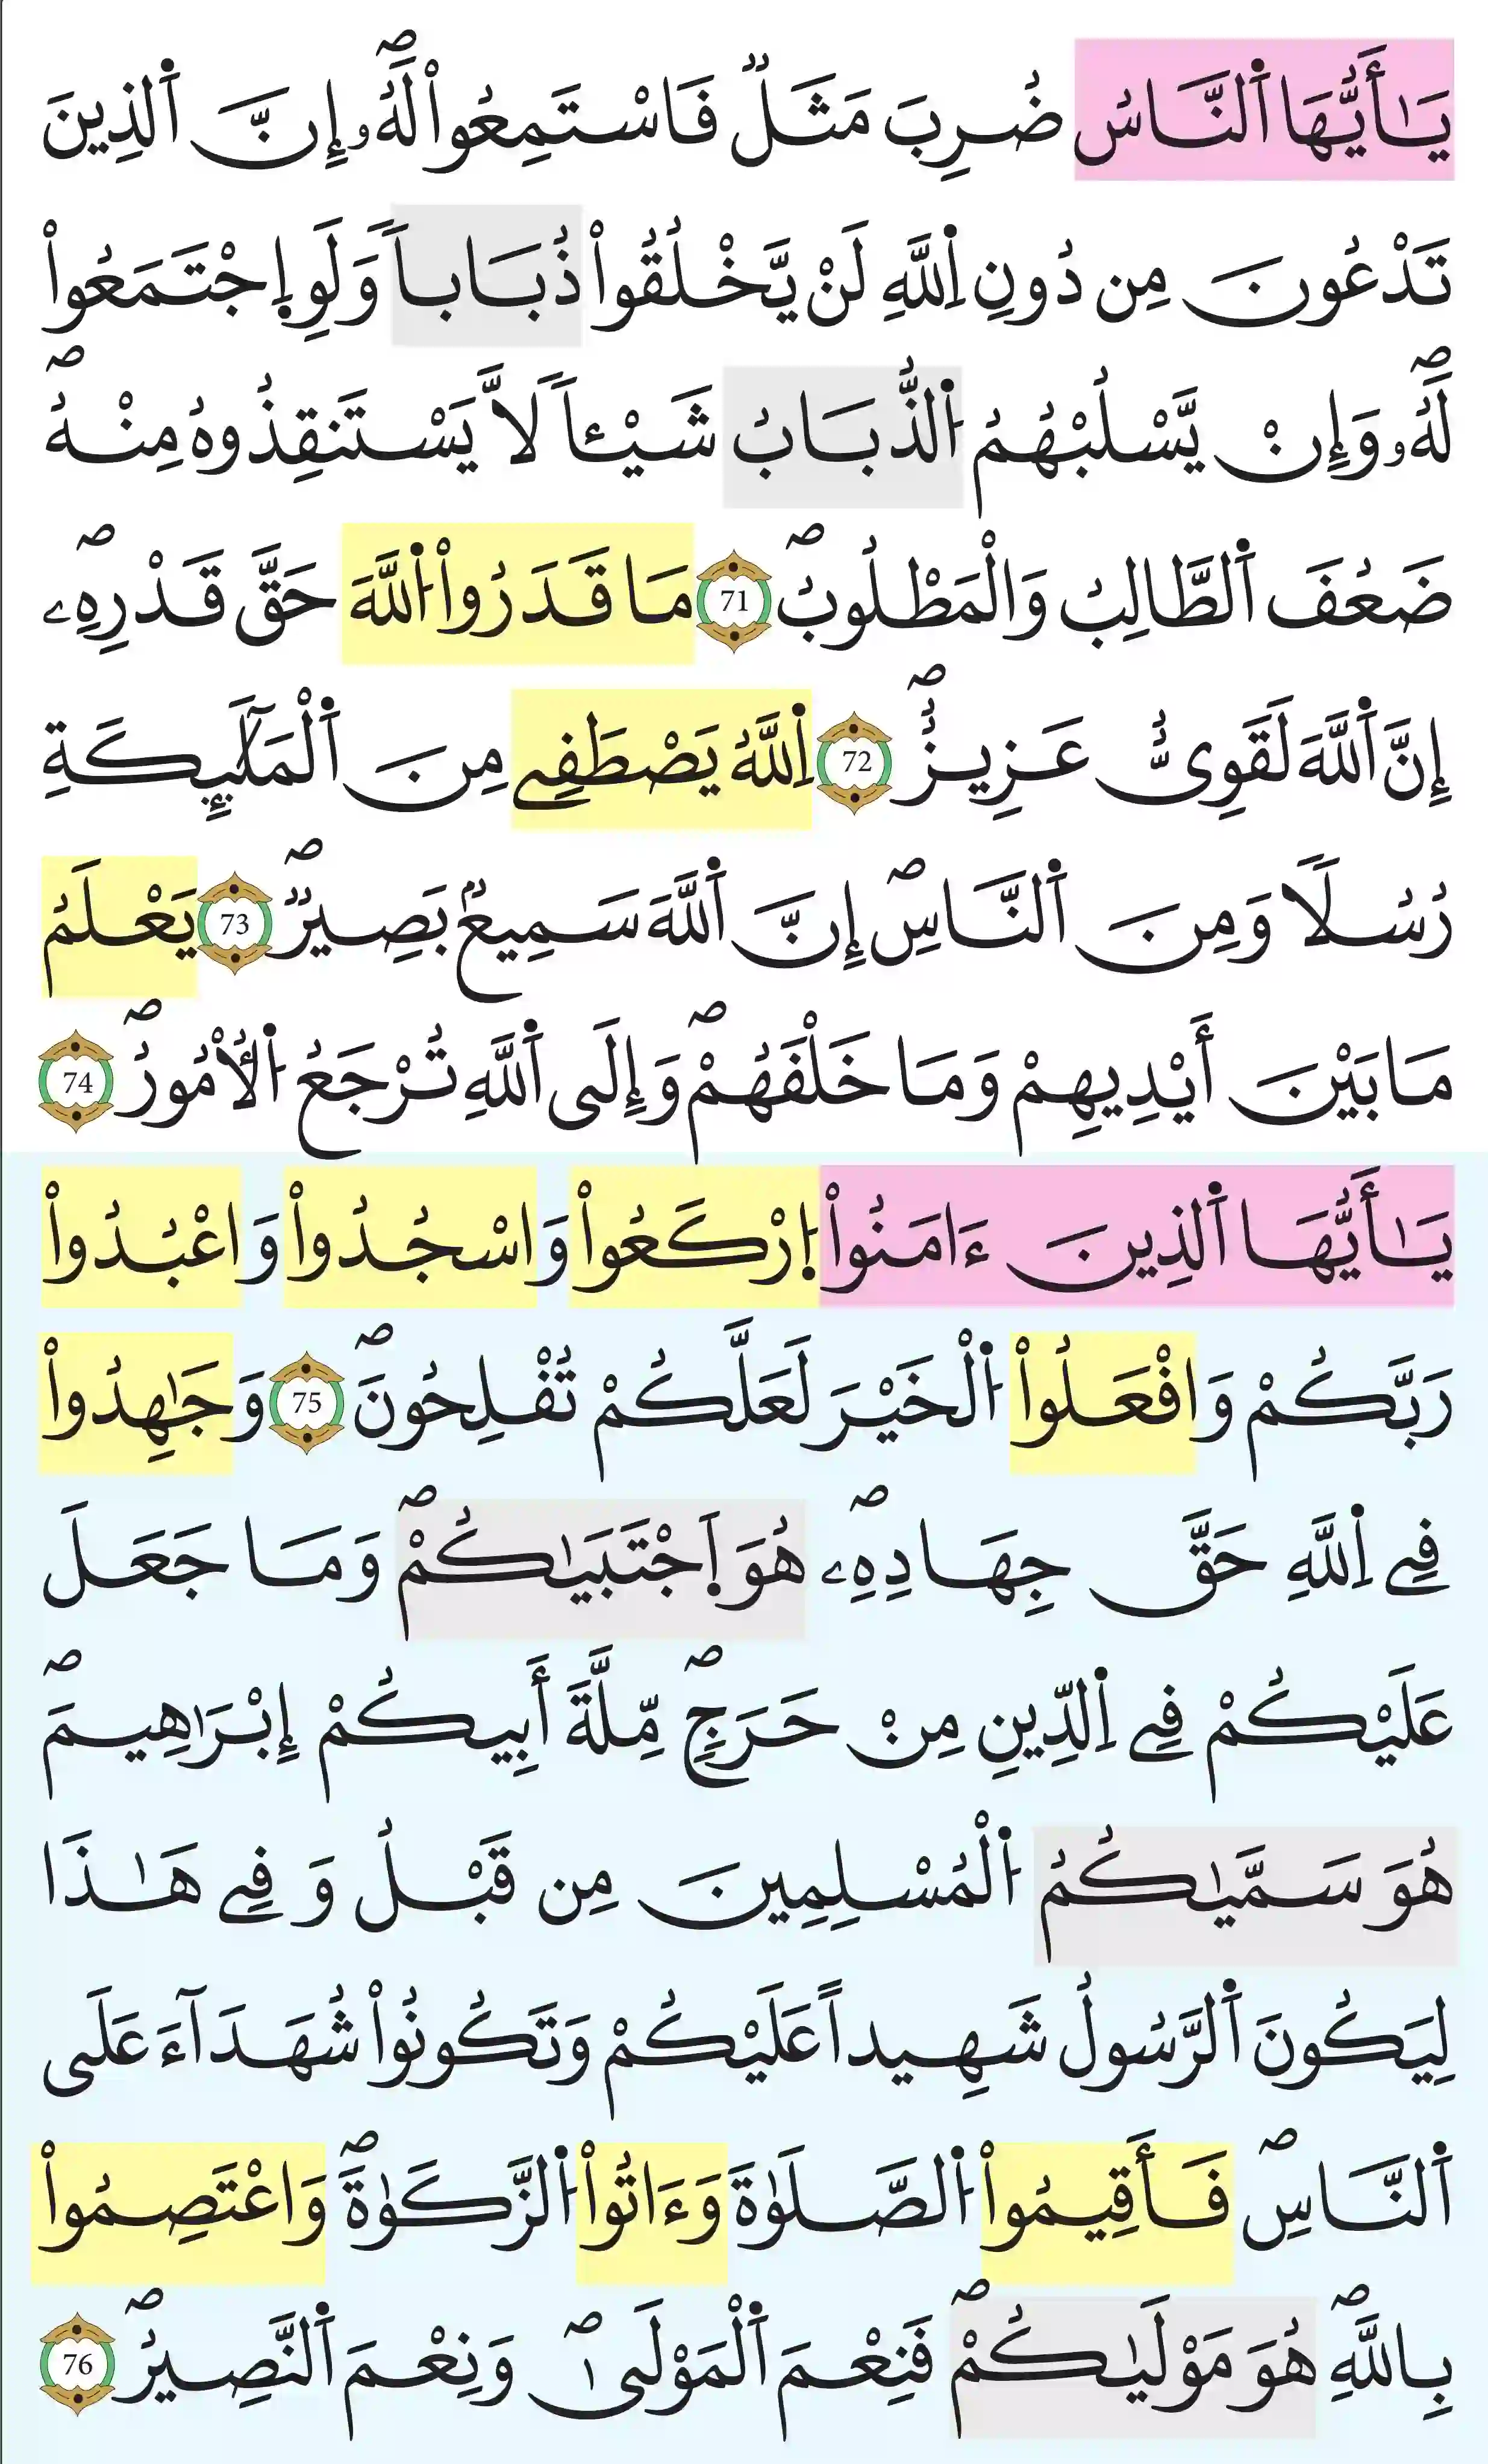 يَـٰٓأَيُّهَا اَ۬لنَّاسُ ضُرِبَ مَثَلٞ فَاسْتَمِعُواْ لَهُۥٓۖ إِنَّ اَ۬لذِينَ
تَدْعُونَ مِن دُونِ اِ۬للَّهِ لَنْ يَّخْلُقُواْ ذُبَاباٗ وَلَوِ اِ۪جْتَمَعُواْ
لَهُۥۖ وَإِنْ يَّسْلُبْهُمُ اُ۬لذُّبَابُ شَيْـٔاٗ لَّا يَسْتَنقِذُوهُ مِنْهُۖ
ضَعُفَ اَ۬لطَّالِبُ وَالْمَطْلُوبُۖ 71 مَا قَدَرُواْ اُ۬للَّهَ حَقَّ قَدْرِهِۦٓۖ
إِنَّ اَ۬للَّهَ لَقَوِىٌّ عَزِيزٌۖ 72 اِ۬للَّهُ يَصْطَفِے مِنَ اَ۬لْمَلَٰٓئِكَةِ
رُسُلاٗ وَمِنَ اَ۬لنَّاسِۖ إِنَّ اَ۬للَّهَ سَمِيعُۢ بَصِيرٞۖ 73 يَعْلَمُ
مَا بَيْنَ أَيْدِيهِمْ وَمَا خَلْفَهُمْۖ وَإِلَى اَ۬للَّهِ تُرْجَعُ اُ۬لْأُمُورُۖ 74
يَـٰٓأَيُّهَا اَ۬لذِينَ ءَامَنُواْ اُ۪رْكَعُواْ وَاسْجُدُواْ وَاعْبُدُواْ
رَبَّكُمْ وَافْعَلُواْ اُ۬لْخَيْرَ لَعَلَّكُمْ تُفْلِحُونَۖ 75 وَجَٰهِدُواْ
فِے اِ۬للَّهِ حَقَّ جِهَادِهِۦۖ هُوَ اَ۪جْتَبَيٰكُمْۖ وَمَا جَعَلَ
عَلَيْكُمْ فِے اِ۬لدِّينِ مِنْ حَرَجٖۖ مِّلَّةَ أَبِيكُمْ إِبْرَٰهِيمَۖ
هُوَ سَمَّيٰكُمُ اُ۬لْمُسْلِمِينَ مِن قَبْلُ وَفِے هَـٰذَا
لِيَكُونَ اَ۬لرَّسُولُ شَهِيداً عَلَيْكُمْ وَتَكُونُواْ شُهَدَآءَ عَلَى
اَ۬لنَّاسِۖ فَأَقِيمُواْ اُ۬لصَّلَوٰةَ وَءَاتُواْ اُ۬لزَّكَوٰةَۖ وَاعْتَصِمُواْ
بِاللَّهِۖ هُوَ مَوْلَيٰكُمْۖ فَنِعْمَ اَ۬لْمَوْلَىٰۖ وَنِعْمَ اَ۬لنَّصِيرُۖ 76